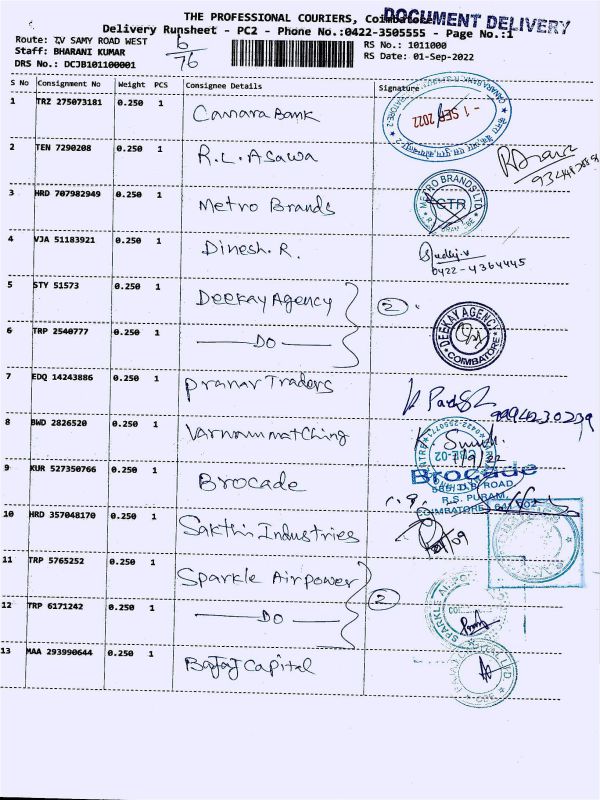 THE PROFESSIONAL COURIERS, Coimbatore
DOCUMENT DELIVERY
Delivery Runsheet - PC2 - Phone No.:0422-3505555 - Page No.:1
Route: TV SAMY ROAD WEST
6/76
RS No.: 1011000
Staff: BHARANI KUMAR
RS Date: 01-Sep-2022
DRS No.: DCJB101100001
S No Consignment No Weight PCS Consignee Details Signature
1 TRZ 275073181 0.250 1 Canara Bank
- 1 SEP 2022
2 TEN 7290208 0.250 1 R.L. Asawa
3 HRD 707982949 0.250 1 Metro Brands
METRO BRANDS LTD
4 VJA 51183921 0.250 1 Dinesh. R.
0422-4364445
5 STY 51573 0.250 1 Deekay Agency
2
DEEKAY AGENCY
COIMBATORE
6 TRP 2540777 0.250 1 DO
7 EDQ 14243886 0.250 1 Pranav Traders
9994230239
8 BWD 2826520 0.250 1 Varnam matching
9 KUR 527350766 0.250 1 Brocade
Brocade
D.B. ROAD
R.S. PURAM,
10 HRD 357048170 0.250 1 Sakthi Industries
11 TRP 5765252 0.250 1 Sparkle Airpower
2
12 TRP 6171242 0.250 1 DO
13 MAA 293990644 0.250 1 Bajaj Capital